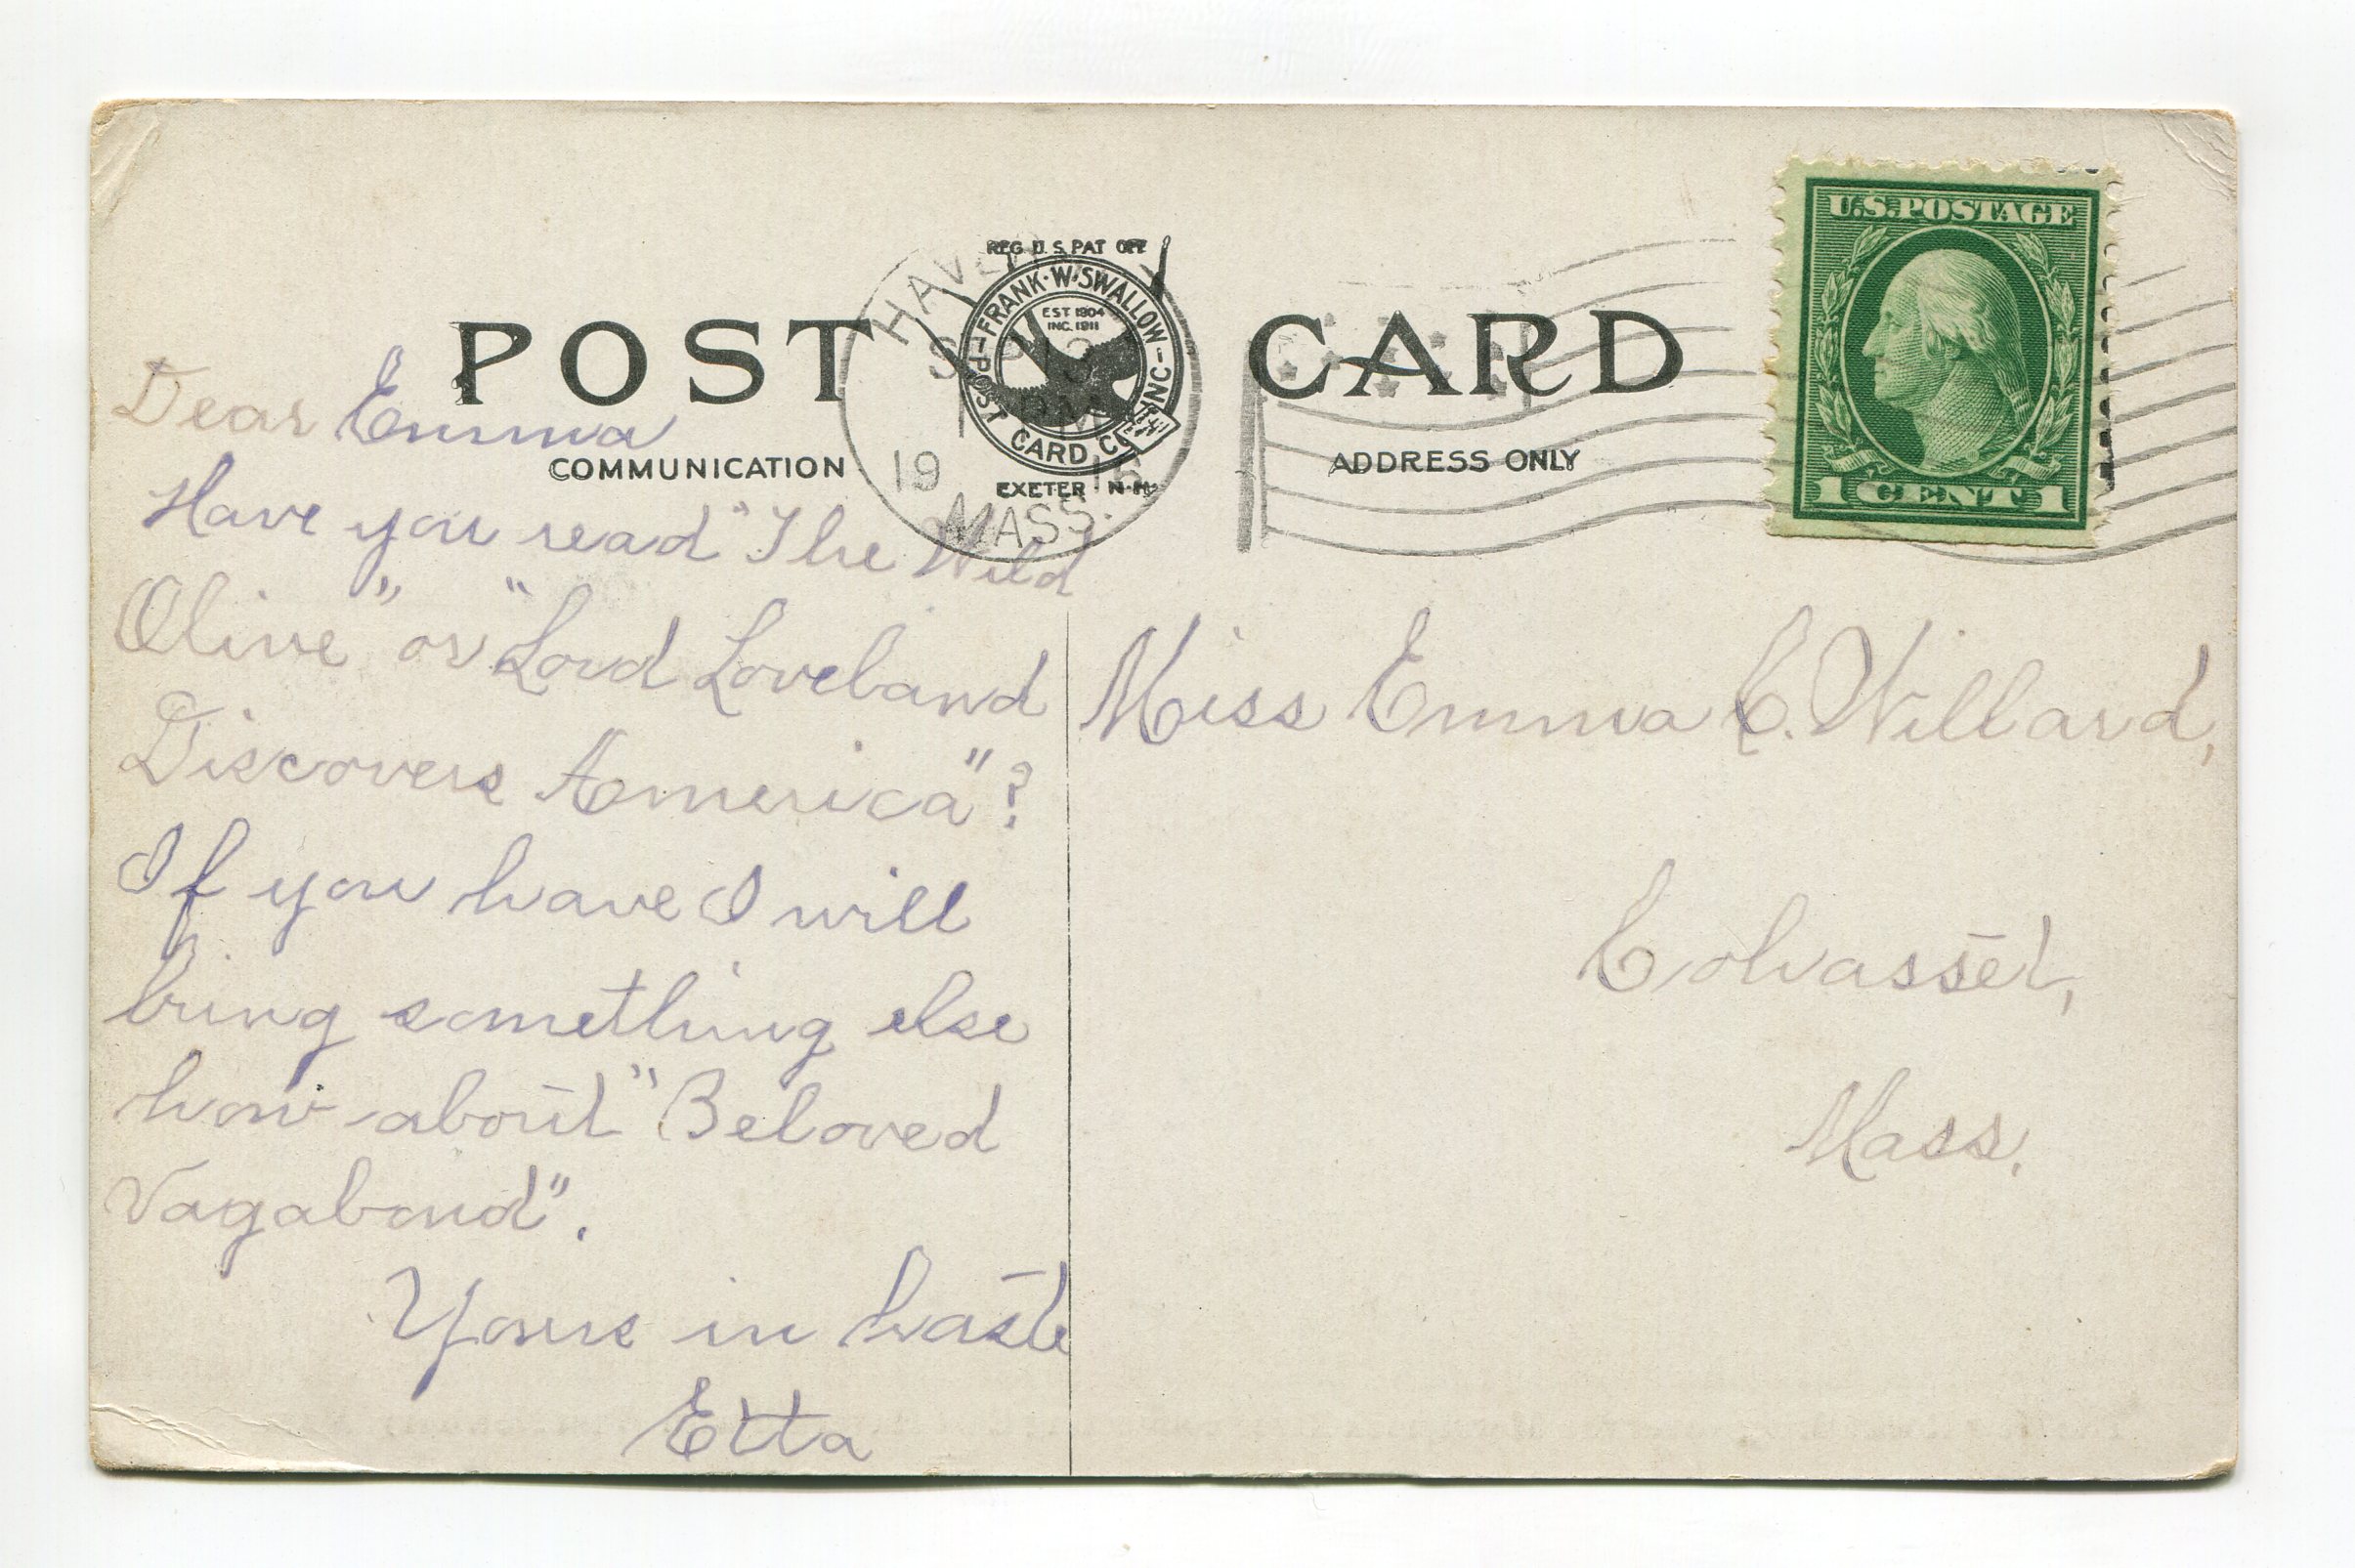 POST CARD
REG. U. S. PAT. OFF.
FRANK·W·SWALLOW
POST CARD CO. INC.
EST 1904
INC. 1911
EXETER N·H·
COMMUNICATION
ADDRESS ONLY
HAV
19 15
MASS.
U.S. POSTAGE
1 CENT 1
Dear Emma
Have you read "The Wild
Olive" or "Lord Loveland
Discovers America"?
If you have I will
bring something else
how about "Beloved
Vagabond".
Yours in haste
Etta
Miss Emma C. Willard,
Cohasset,
Mass.